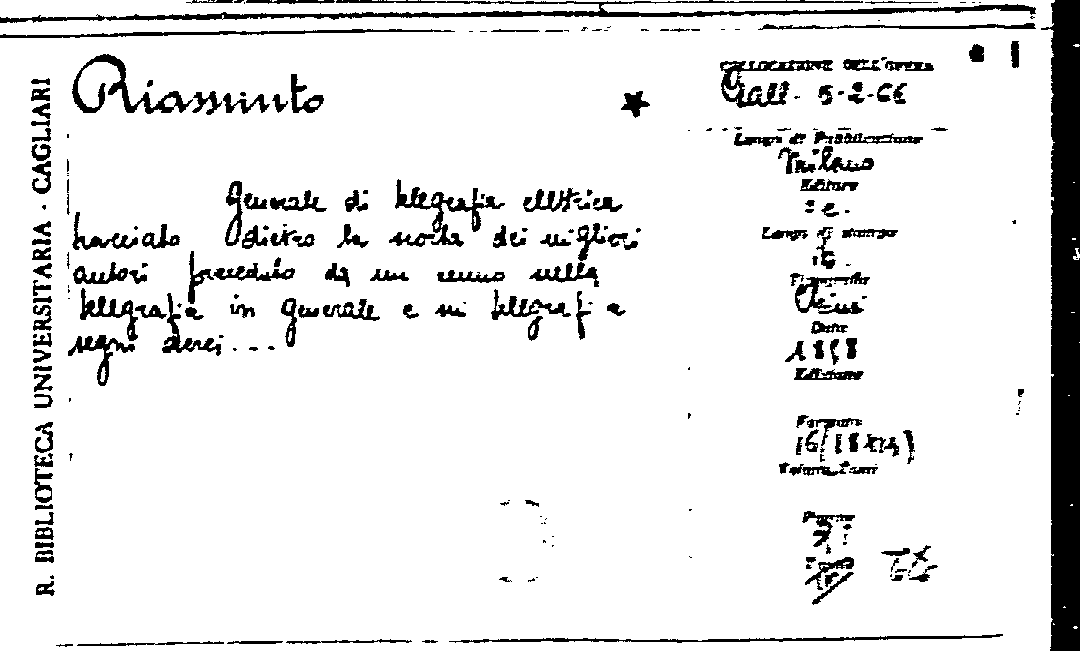 R. BIBLIOTECA UNIVERSITARIA - CAGLIARI
Riassunto
Generale di telegrafia elettrica
tracciato dietro la scorta dei migliori
autori preceduto da un cenno nella
telegrafia in generale e sui telegrafi a
segni aerei....
COLLOCAZIONE DELL'OPERA
Gall. 5-2-66
Luogo di Pubblicazione
Milano
Editore
s. e.
Luogo di stampa
Tipografia
Data
1858
Edizione
Formato
16/(18x12)
Volume
Pagine